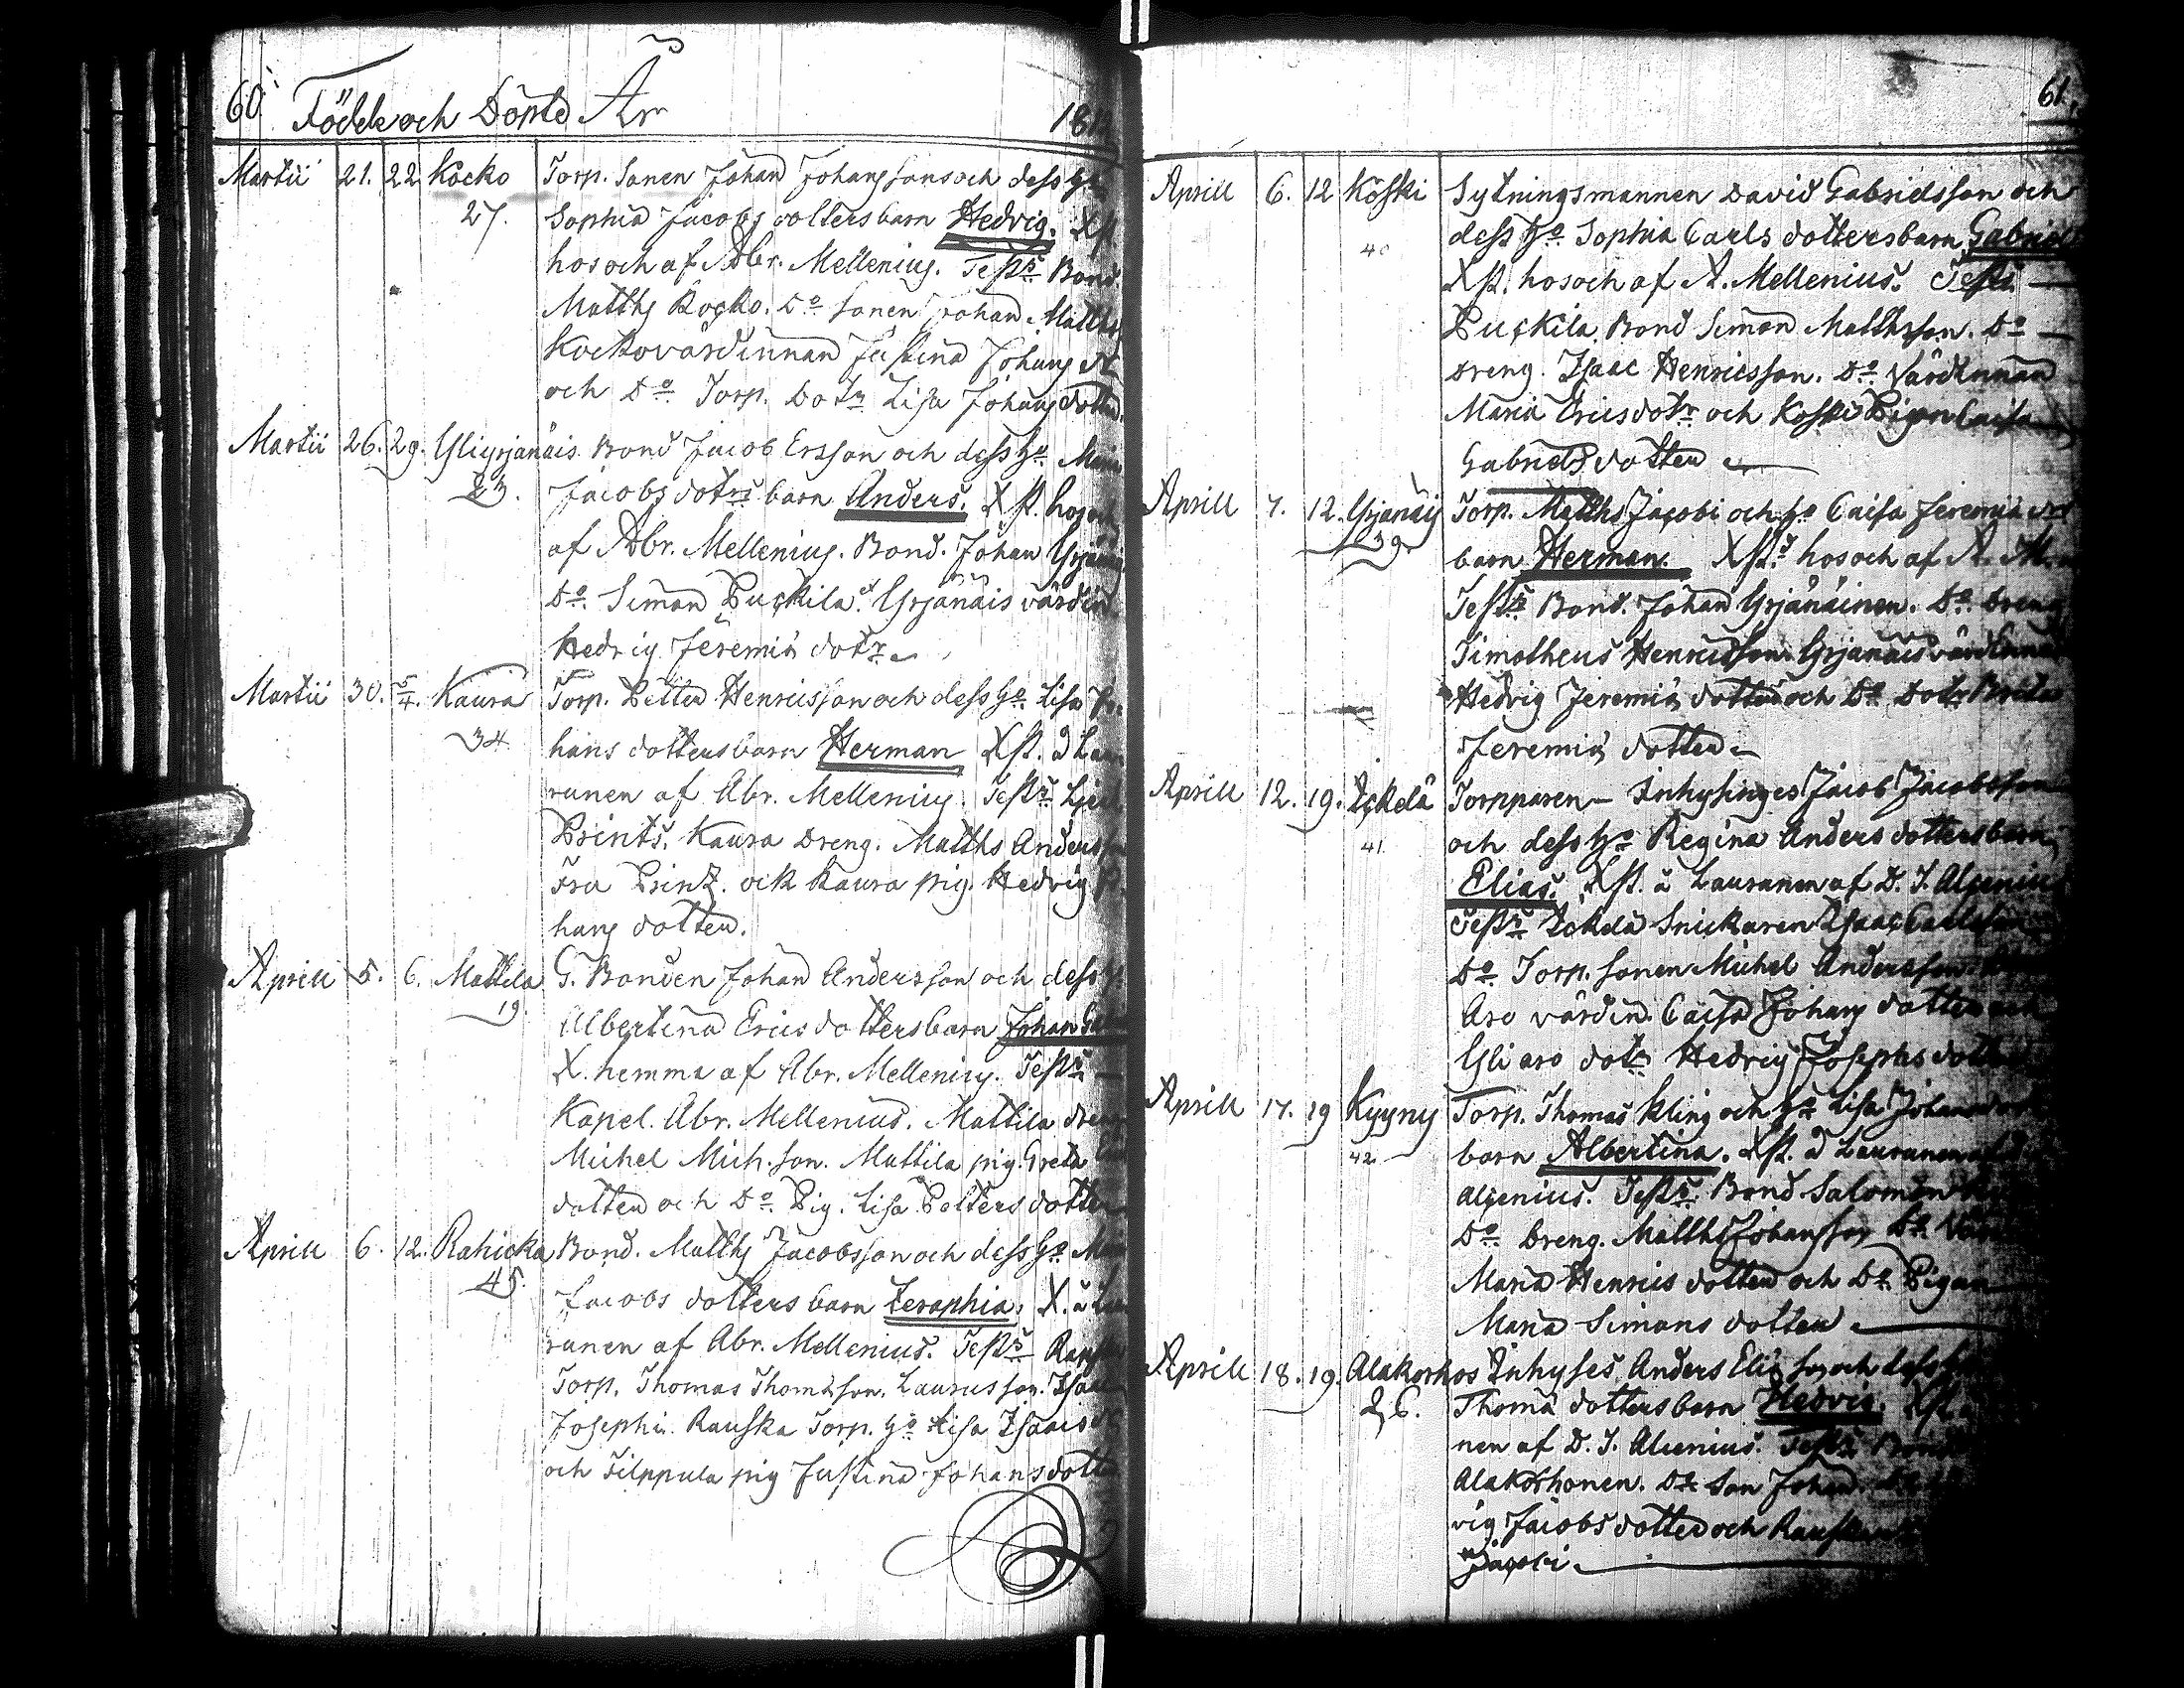 60 Födde och Döpte År 181
Martii 21. 22 Kocko Torp. Sonen Johan Johansson och dess H:o
27. Sophia Jacobs dotters barn Hedvig. Xst.
hos och af Abr. Mellenius. Test:s Bond.
Matths Kocko. D:o sonen Johan Matths
Kockovärdinnan Justina Johans
och D:o Torp. Dot:r Lisa Johans dotter.
Martii 26. 29. Yliyrjänäis Bond Jacob Ersson och dess H:o
23. Jacobs dotrs barn Anders. Xst. hos och
af Abr. Mellenius. Bond. Johan Yrjänäi
D:o Simon Puckila. Yrjänäis värdin
Hedvig Jeremiæ dotr
Martii 30. 5/4. Kaura Torp. Petter Henricsson och dess H:o Lisa Jo
34. hans dotters barn Herman Xst. å Lau
ranen af Abr. Mellenius. Test:s
Prints. Kaura Dreng. Matths Anders
Fru Printz. och Kaura pig. Hedvig
hans dotter.
Aprill 5. 6. Mattila G. Bonden Johan Andersson och dess
19. Albertina Erics dotters barn Johan
X. hemma af Abr. Mellenius. Test:s
Kapel. Abr. Mellenius. Mattila dreng
Michel Mich. son. Mattila pig. Greta
dotter och D:o Pig. Lisa Petters dotter
Aprill 6. 12. Rahicka Bond. Matths Jacobsson och dess H:o
45. Jacobs dotters barn Zeraphia. X. å Lau
ranen af Abr. Mellenius. Test:s
Torp. Thomas Thomæson. Laurus son. Isaac
Josephi. Rauska Torp. H:o Lisa Isaacs
och Filppula pig Justina Johans dotter
61.
Aprill 6. 12 Köski Sytningsmannen David Gabrielsson och
40 dess H:o Sophia Carls dotters barn Gabriel
Xst. hos och af A. Mellenius. Test:s
Puckila Bond Simon Mattsson. D:o
Dreng. Isaac Henricsson. D:o Värdinnan
Maria Ericsdotr och Koski Pigan Caisa
Gabriels dotter
Aprill 7. 12. Yrjänäis Torp. Matths Jacobi och H:o Caisa Jeremiæ
39. barn Herman. Xst. hos och af A. M.
Test:s Bond. Johan Yrjänäinen. D:o Dreng
Timotheus Henricsson. Yrjänäis värdinnan
Hedvig Jeremiæ dotter och D:o Dotr Brita
Jeremiæ dotter
Aprill 12. 19. Torpparen Inhysinges Jacob Jacobsson
41. och dess H:o Regina Anders dotters barn
Elias. Xst. å Lauranen af D. J. Algenius
Test:s Snickaren Isaac
D:o Torp. sonen Michel Andersson.
Aro värdin. Caisa Johans dotter och
Yli aro dotr Hedvig Josephs dotter
Aprill 17. 19 Kyyny Torp. Thomas Kling och H:o Lisa Johans
42 barn Albertina. Xst. å Lauranen af
Algenius. Test:s Bond Salomon
D:o Dreng. Matths Johansson D:o
Maria Henrics dotter och D:o Pigan
Maria Simons dotter
Aprill 18. 19. Alakorhos Inhyses Anders Eliæ son och dess
26. Thomæ dotters barn Hedvig. Xst.
nen af D. J. Algenius. Test:s Bond
Alakorhonen. D:o Son Johan
vig Jacobs dotter och